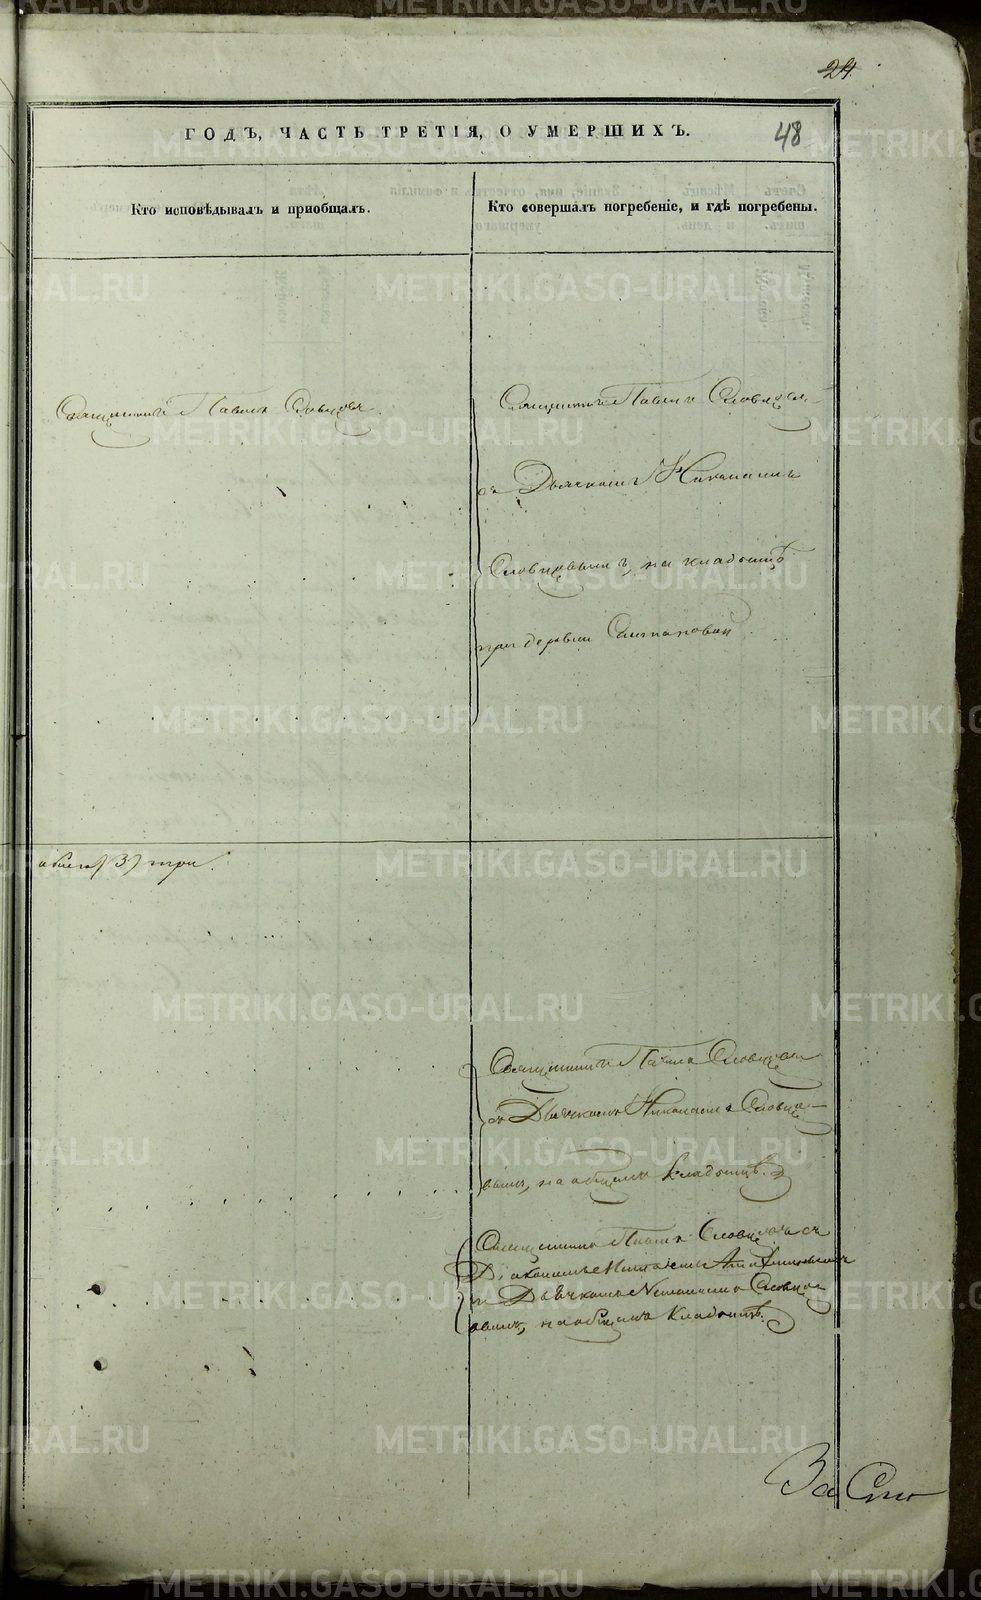 24.
ГОДЪ, ЧАСТЬ ТРЕТІЯ, О УМЕРШИХЪ.
48
Кто исповѣдывалъ и приобщалъ.
Кто совершалъ погребеніе, и гдѣ погребены.
Священникъ Павелъ Словцовъ
Священникъ Павелъ Словцовъ
съ Дьячкомъ
Словцовымъ, на кладбищѣ
при деревни
(3) три.
Священникъ Павелъ Словцовъ
съ Дьячкомъ Словцо-
вымъ, на общемъ кладбищѣ.
Священникъ Павелъ Словцовъ съ
Діакономъ
и Дьячкомъ Словцо-
вымъ, на общемъ кладбищѣ.
METRIKI.GASO-URAL.RU